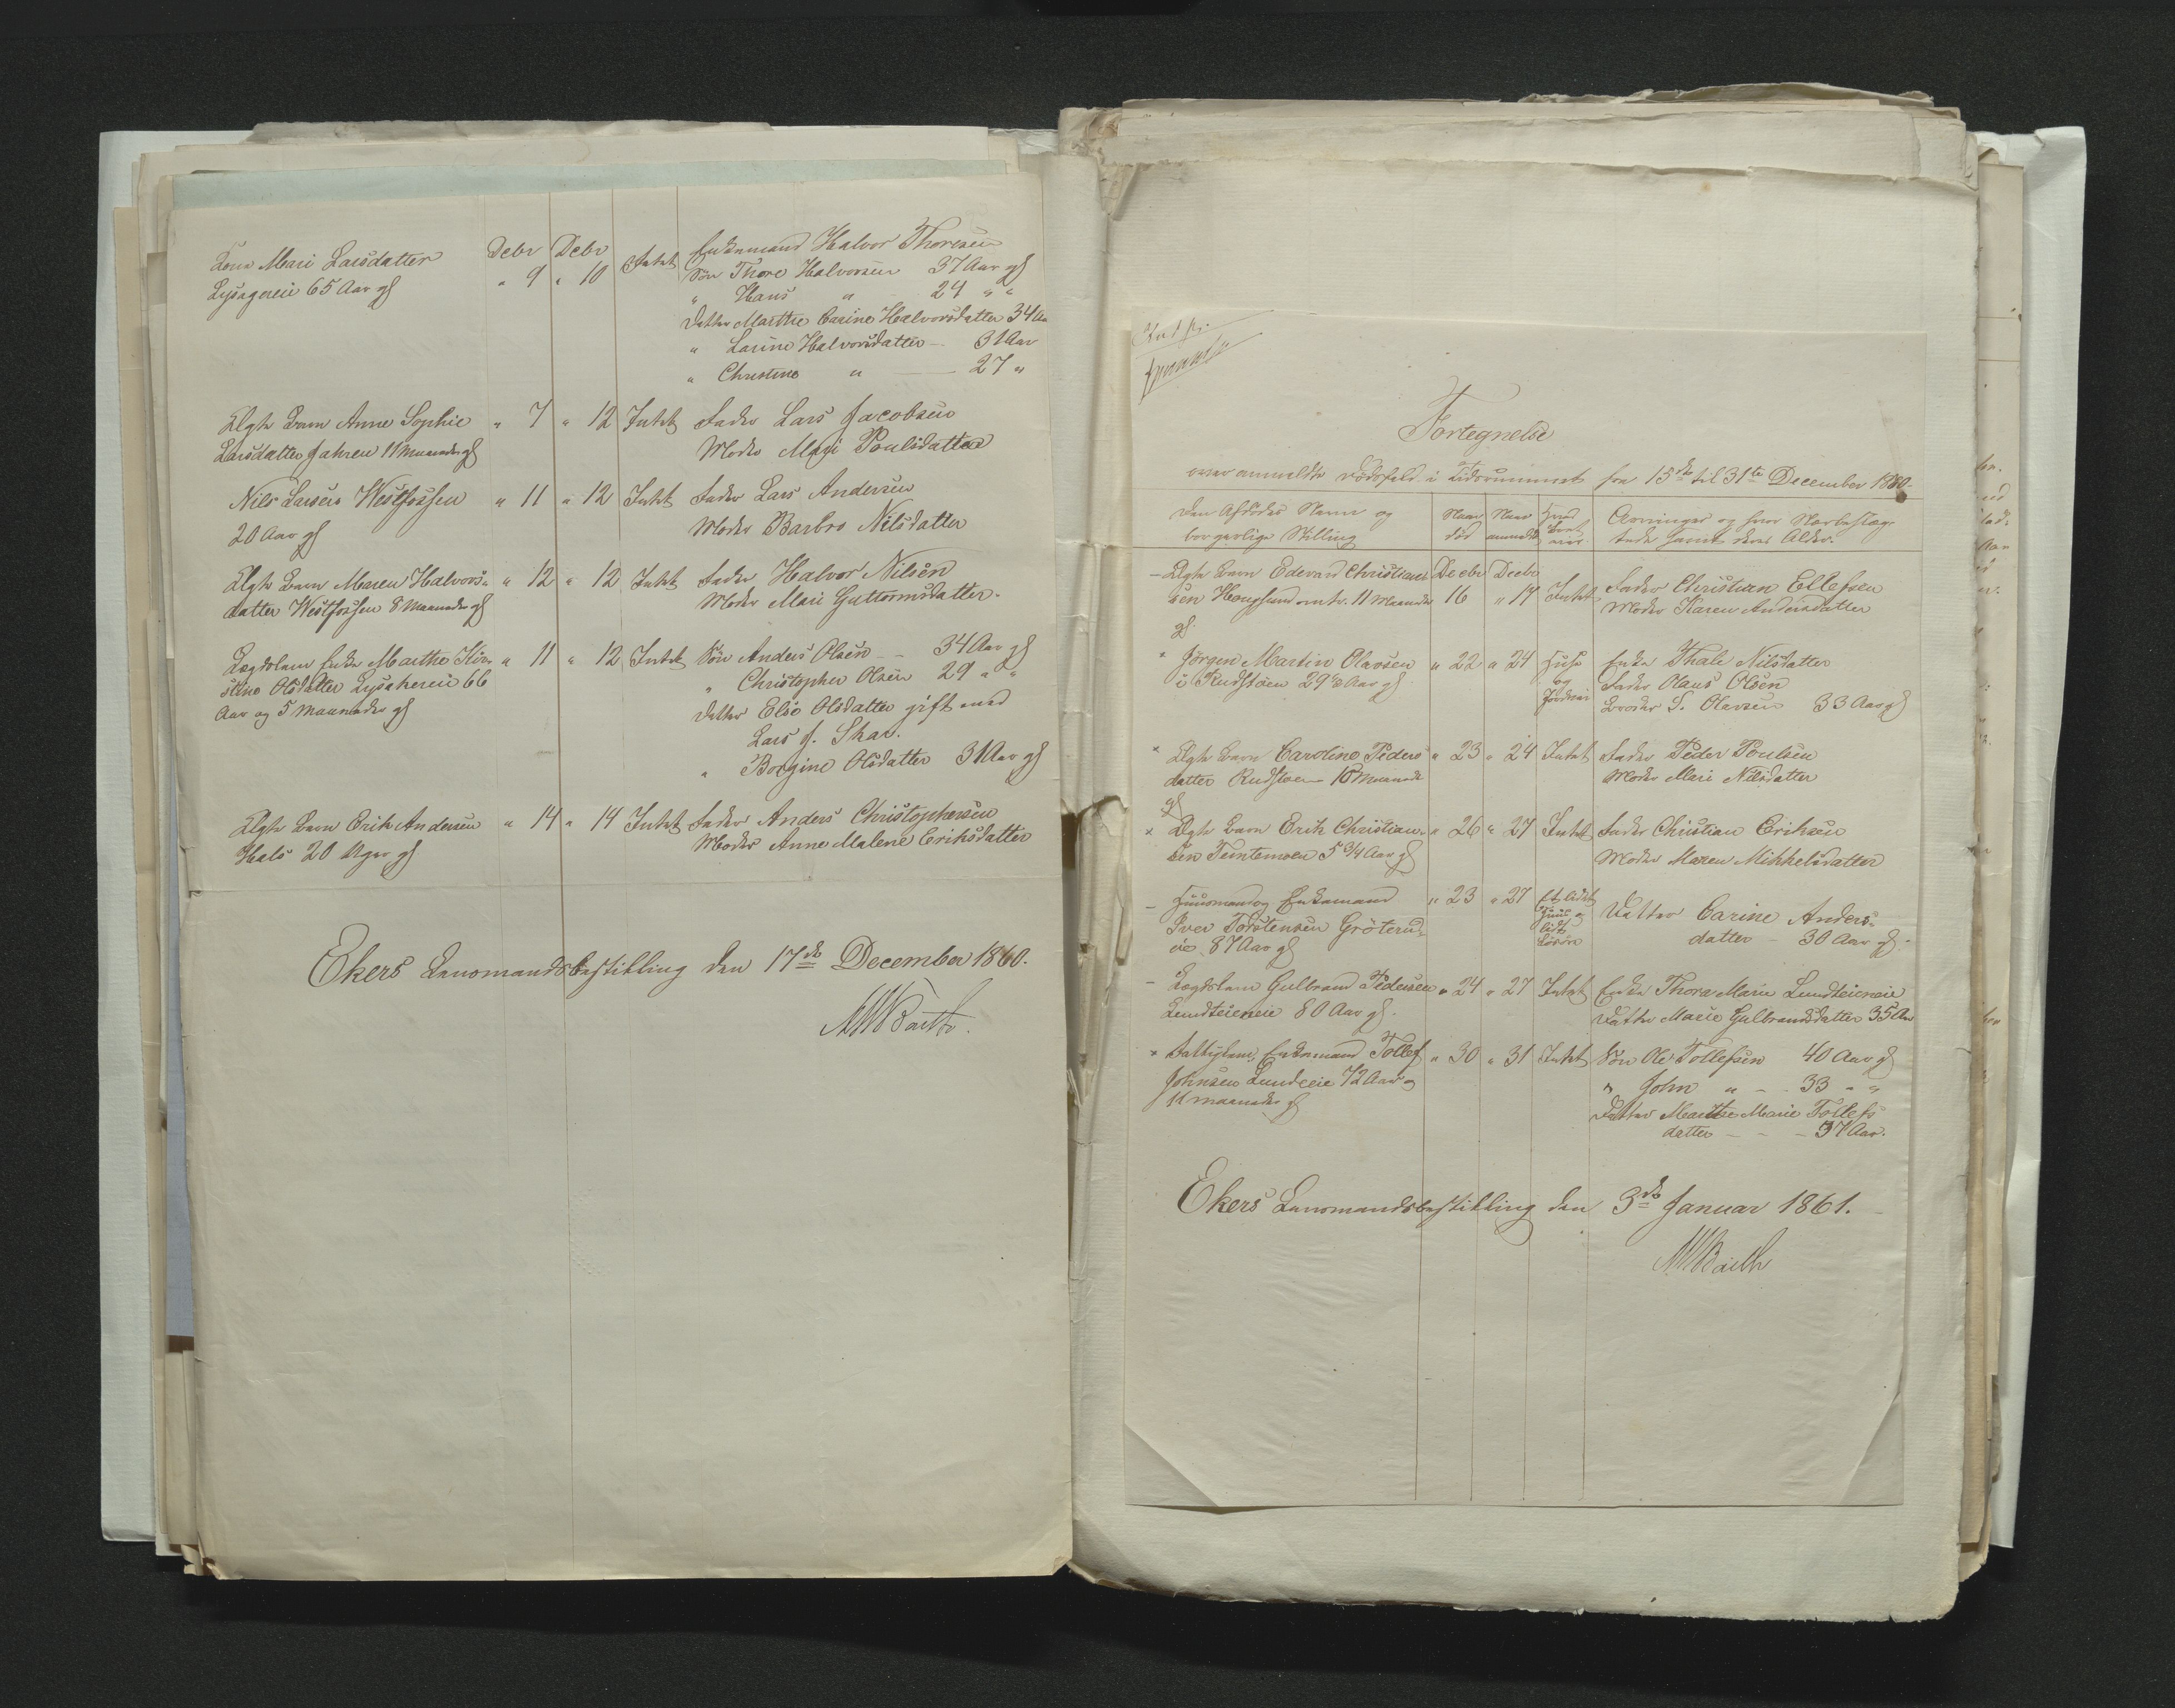 Kone Mari Larsdatter Debr Debr Intet Enkemand Halvor Thoresen
Lysagereie 65 Aar gl " 9 " 10 Søn Thore Halvorsen 37 Aar gl
" Hans " 24 " "
Datter Marthe Carine Halvorsdatter 34 Aar
" Larine Halvorsdatter - 31 Aar
" Christine " — 27 "
Ægte Barn Anne Sophie " 7 " 12 Intet Fader Lars Jacobsen
Larsdatter Fahren 11 Maaneder gl Moder Mari Poulsdatter
Nils Larsen Westfossen " 11 " 12 Intet Fader Lars Andersen
20 Aar gl Moder Barbro Nilsdatter
Ægte Barn Maren Halvors- " 12 " 12 Intet Fader Halvor Nilsen
datter Westfossen 8 Maaneder gl Moder Mari Guttormsdatter.
Lægdslem Enke Marthe Kir- " 11 " 12 Intet Søn Anders Olsen - - 34 Aar gl
stine Olsdatter Lysakereie 66 " Christopher Olsen 29 " "
Aar og 5 Maaneder gl Datter Else Olsdatter gift med
Lars J. Skar.
" Borgine Olsdatter 31 Aar gl
Ægte Barn Erik Andersen " 14 " 14 Intet Fader Anders Christophersen
Hals 20 Uger gl Moder Anne Malene Eriksdatter
Ekers Lensmandsbestilling den 17de December 1860.
Fortegnelse
over anmeldte Dødsfald i Tidsrummet fra 15de til 31te December 1860.
Den Afdødes Navn og Naar Naar Hvad Arvinger og hvor Nærbeslæg-
borgerlige Stilling død anmeldt samt deres Alder.
- Ægte Barn Edevard Christian- Decbr Decbr
sen Hougsund omtr. 11 Maaneder 16 " 17 Intet Fader Christian Ellefsen
gl. Moder Karen Andersdatter
" Jørgen Martin Olavsen " 22 " 24 Huse Enke Thale Nilsdatter
i Rudstøen 29½ Aar gl og Fader Olaus Olsen
Jordvei Broder S. Olavsen 33 Aar gl
× Ægte Barn Caroline Peders- " 23 " 24 Intet Fader Peder Poulsen
datter Rudstøen 10 Maaneder Moder Mari Nilsdatter
gl
× Ægte Barn Erik Christian- " 26 " 27 Intet Fader Christian Eriksen
sen Temtemoen 5 3/4 Aar gl Moder Maren Mikkelsdatter
- Huusmand og Enkemand " 23 " 27 Et lidet Datter Carine Anders-
Iver Torstensen Grøterud- Huus og datter - 30 Aar gl.
eie 87 Aar gl lidt Løsøre
- Lægdslem Gulbrand Pedersen " 24 " 27 Intet Enke Thora Marie Lundteieneie
Lundteieneie 80 Aar gl. Datter Marie Gulbrandsdatter 35 Aar
× Fattiglem, Enkemand Tollef " 30 " 31 Intet Søn Ole Tollefsen 40 Aar gl
Johnsen Lundeeie 72 Aar og " John " - - 33 " "
11 Maaneder gl Datter Marthe Marie Tollefs-
datter - - - 37 Aar.
Ekers Lensmandsbestilling den 3de Januar 1861.